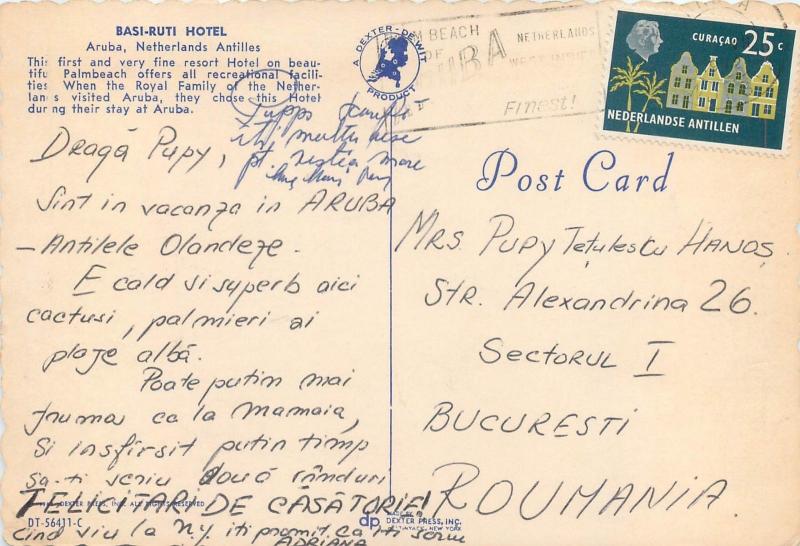 BASI-RUTI HOTEL
Aruba, Netherlands Antilles
This first and very fine resort Hotel on beau-
tiful Palmbeach offers all recreational facili-
ties When the Royal Family of the Nether-
lands visited Aruba, they chose this Hotel
during their stay at Aruba.
A DEXTER-DEWIT
PRODUCT
PALM BEACH
OF
ARUBA
NETHERLANDS
WEST INDIES
Finest!
CURAÇAO 25 c
NEDERLANDSE ANTILLEN
Post Card
Dragă Pupy,
Sint in vacanza in ARUBA
- Antilele Olandeze.
E cald si superb aici
cactusi, palmieri ai
plaje albă.
Poate putin mai
frumos ca la Mamaia,
Si insfîrsit putin timp
sa-ti scriu două rânduri
FELICITARI DE CĂSĂTORIE!
cind viu la N.Y. iti promit ca iti scriu
ADRIANA
Mrs Pupy Tetulescu Hanos
Str. Alexandrina 26.
Sectorul I
BUCURESTI
ROUMANIA.
DEXTER PRESS, INC. ALL RIGHTS RESERVED
DT-56411-C
dp
MADE BY
DEXTER PRESS, INC.
WEST NYACK, NEW YORK